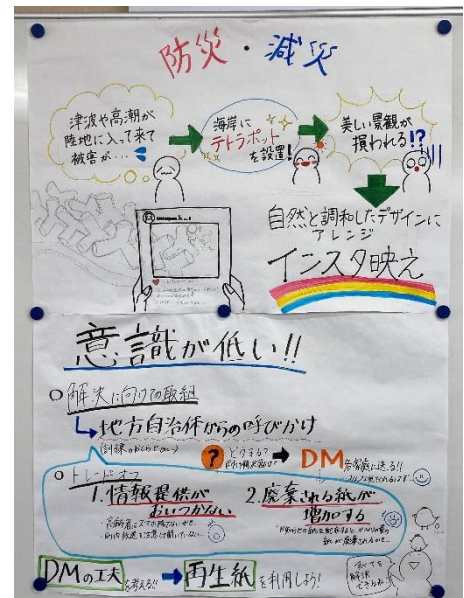 防災・減災
津波や高潮が
陸地に入って来て
被害が…
海岸に
テトラポット
を設置!
美しい景観が
損われる!?
自然と調和したデザインに
アレンジ
インスタ映え
意識が低い!!
○解決に向けての取組
地方自治体からの呼びかけ
?
どうする?
→DM
各家庭に送る!!
○トレードオフ
1.情報提供が
おいつかない
2.廃棄される紙が
増加する
DMの工夫を考える!!→再生紙を利用しよう!
すべてを
解決
できるね